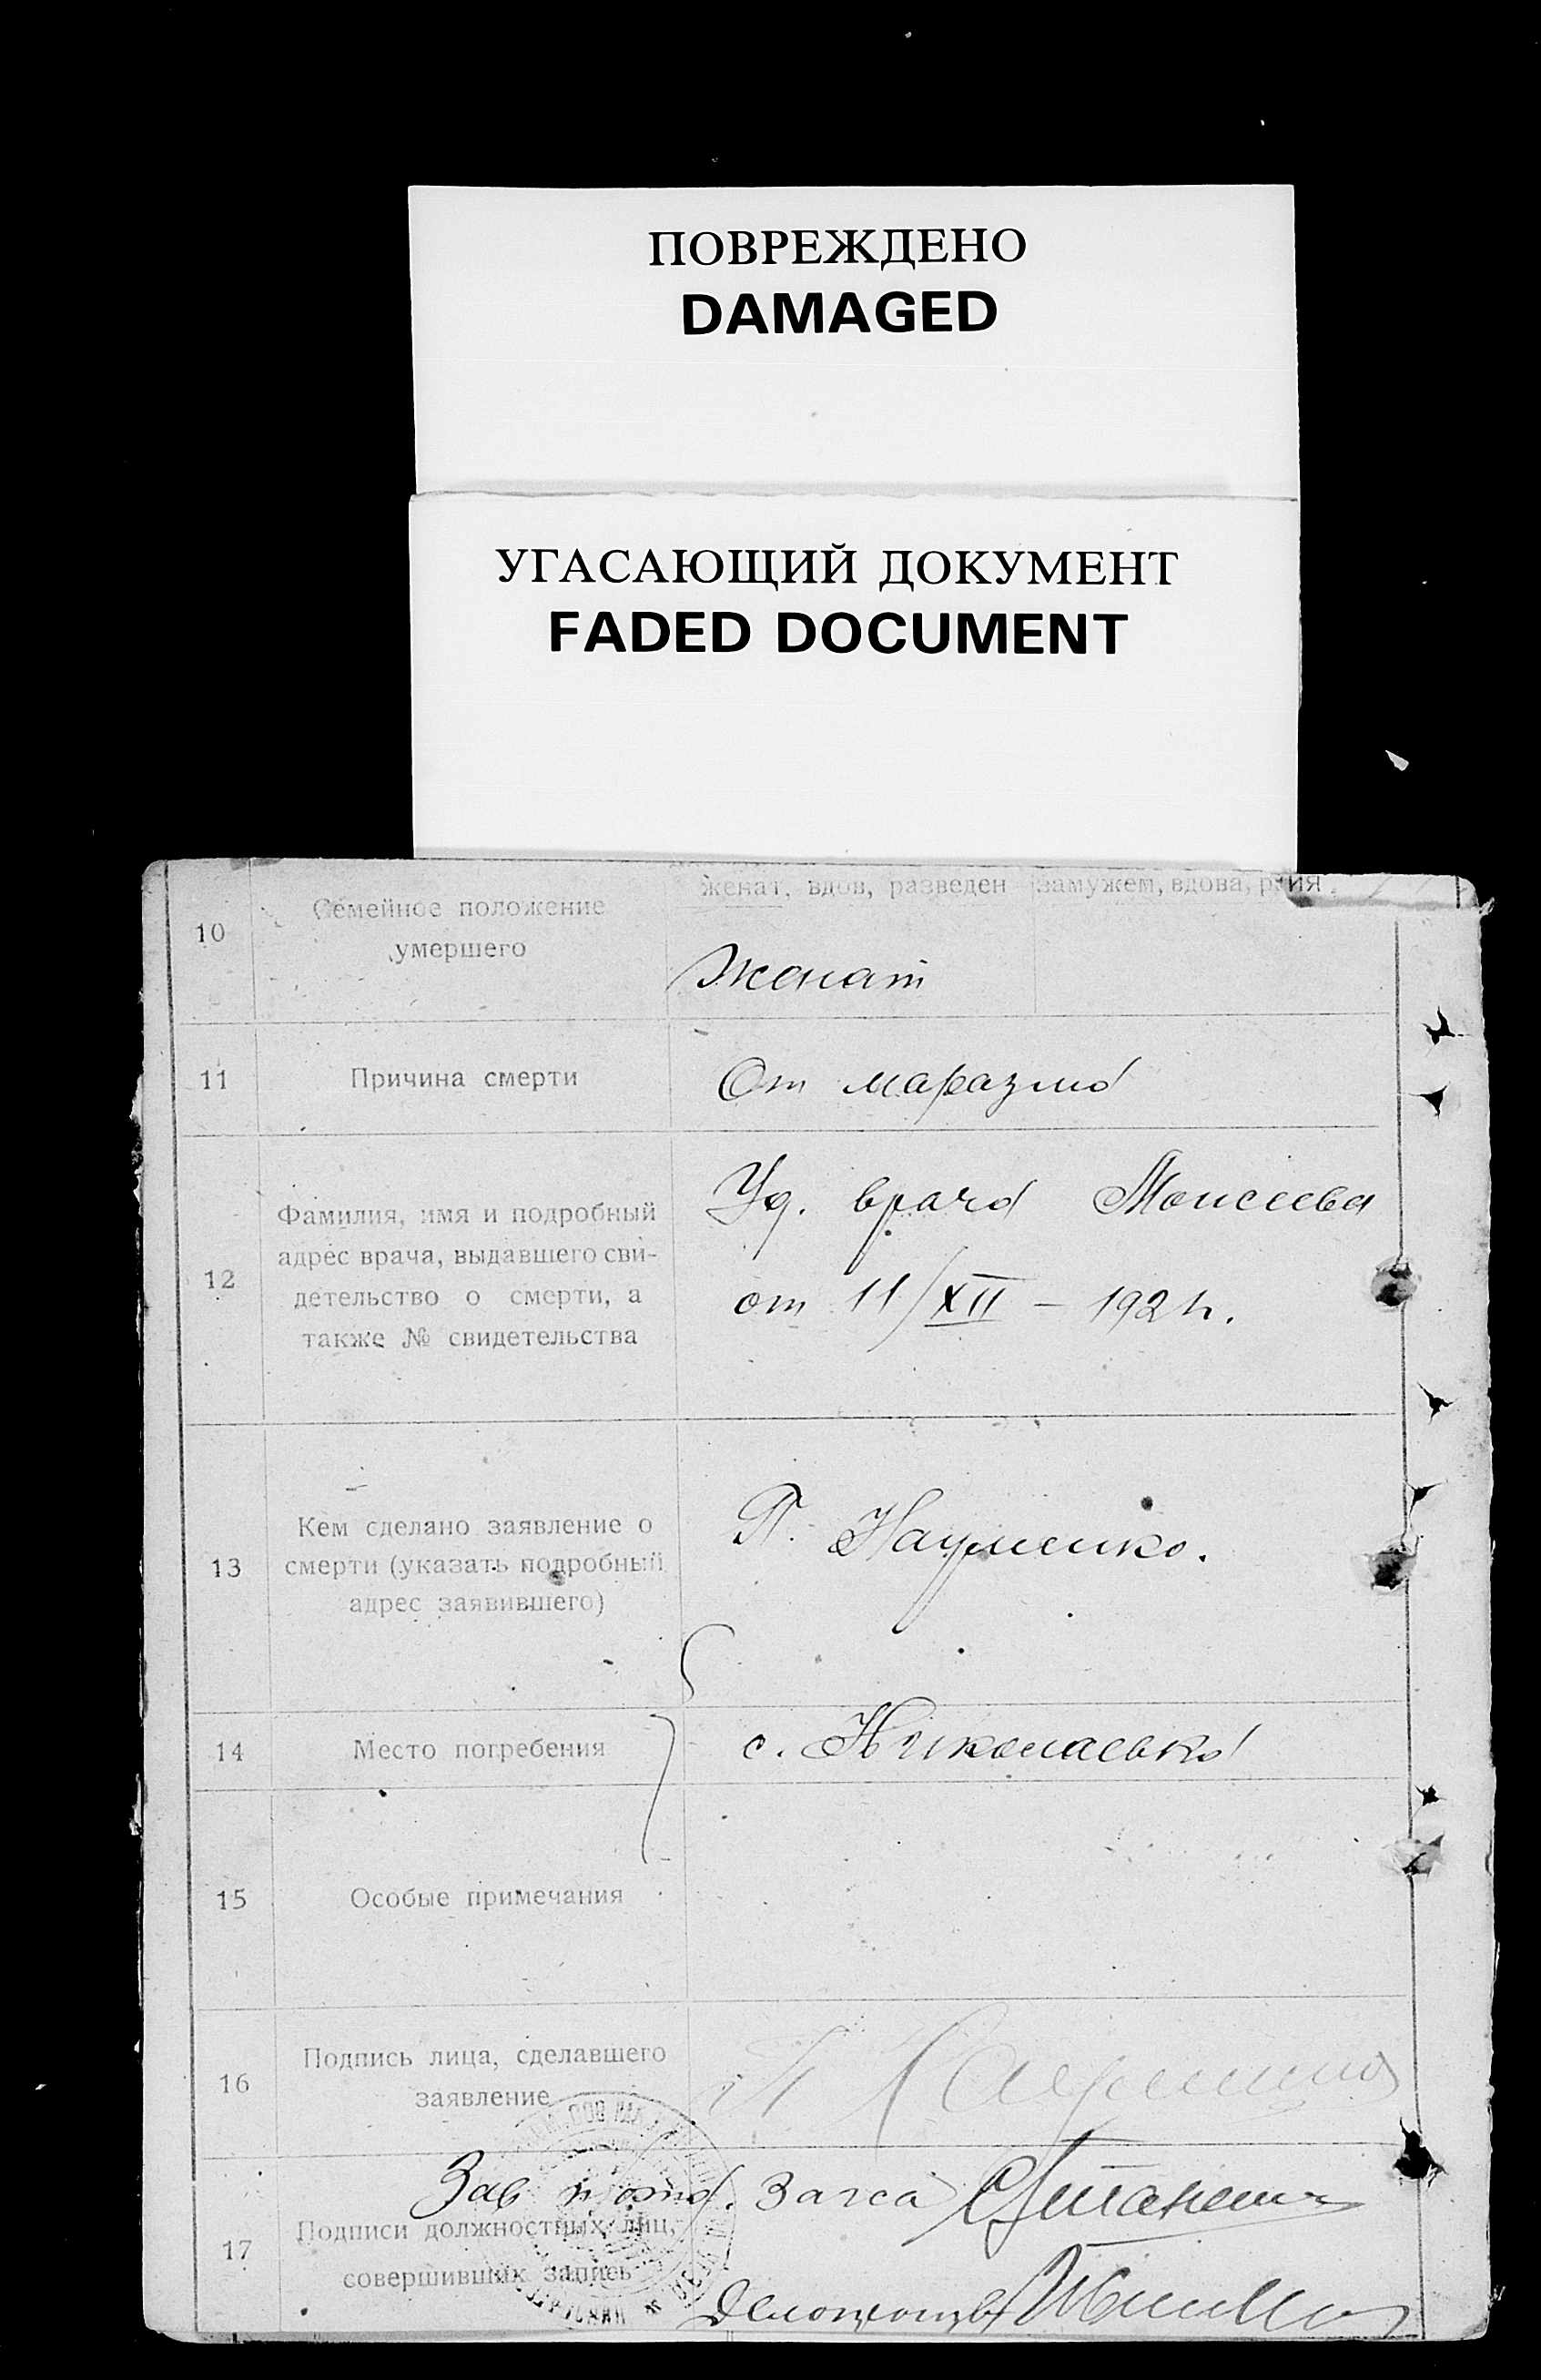 ПОВРЕЖДЕНО
DAMAGED
УГАСАЮЩИЙ ДОКУМЕНТ
FADED DOCUMENT
10
Семейное положение
умершего
женат, вдов, разведен
замужем, вдова,
женат
11
Причина смерти
От маразма
12
Фамилия, имя и подробный
адрес врача, выдавшего сви-
детельство о смерти, а
также № свидетельства
Уд. врача Моисеева
от 11/XII – 192
13
Кем сделано заявление о
смерти (указать подробный
адрес заявившего)
П. Науменко.
14
Место погребения
с. Николаевка
15
Особые примечания
16
Подпись лица, сделавшего
заявление
П Науменко
17
Подписи должностных лиц,
совершивших запись
Зав. Загса
Делопроизв